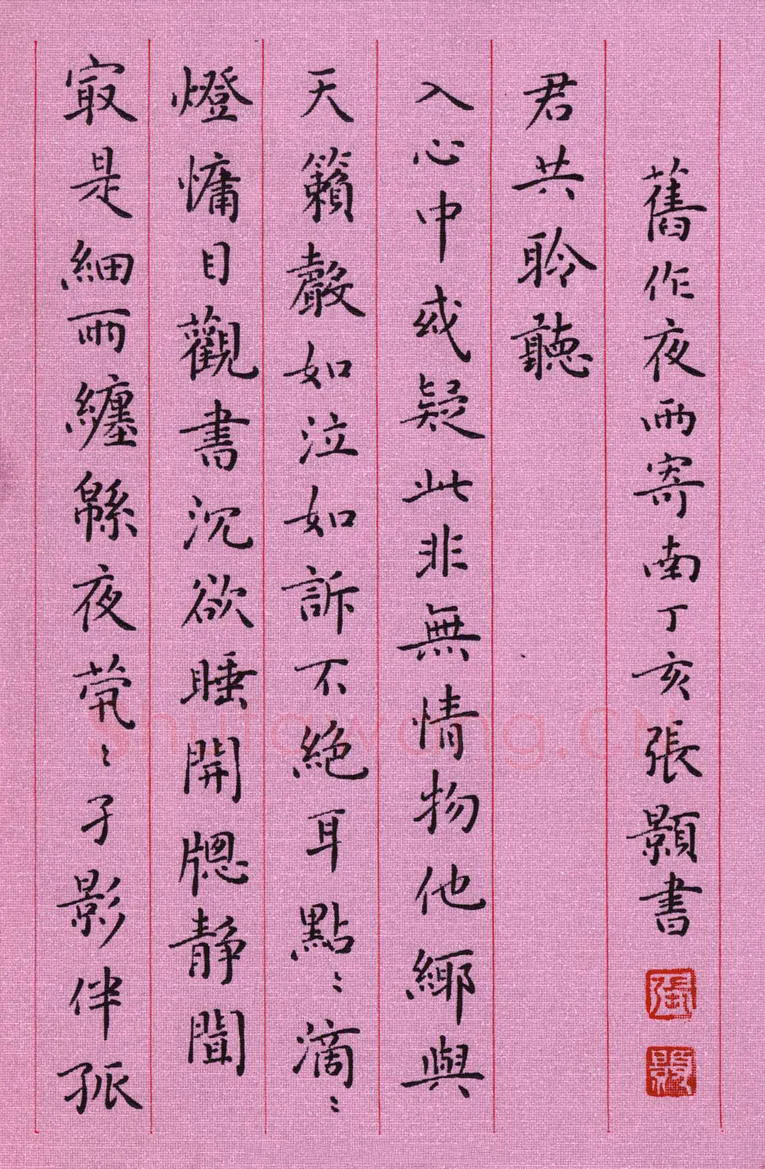 㝡是細雨纏緜夜煢〻孑影伴孤
燈慵目觀書沉欲睡開牕靜聞
天籟聲如泣如訴不絕耳點〻滴〻
入心中或疑此非無情物他鄉與
君共聆聽
舊作夜雨寄南丁亥張顥書